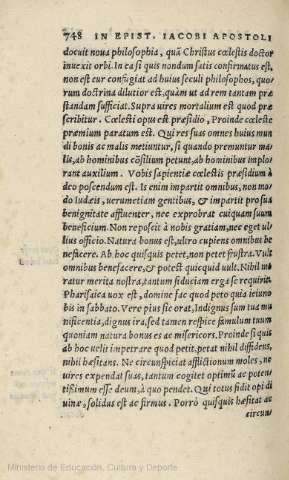 748 IN EPIST. IACOBI APOSTOLI
docuit noua philosophia, quā Christus cœlestis doctor
inuexit orbi. In ea si quis nondum satis confirmatus est,
non est cur confugiat ad huius seculi philosophos, quo-
rum doctrina dilutior est, quàm ut ad rem tantam præ
standam sufficiat. Supra uires mortalium est quod præ
scribitur. Cœlesti opus est præsidio, Proinde cœleste
præmium paratum est. Qui res suas omnes huius mun
di bonis ac malis metiuntur, si quando premuntur ma-
lis, ab hominibus cōsilium petunt, ab hominibus implo
rant auxilium. Vobis sapientiæ cœlestis præsidium à
deo poscendum est. Is enim impartit omnibus, non mo
do Iudæis, uerumetiam gentibus, & impartit pro sua
benignitate affluenter, nec exprobrat cuiquam suum
beneficium. Non reposcit à nobis gratiam, nec eget ul-
lius officio. Natura bonus est, ultro cupiens omnibus be
nefacere. Ab hoc quisquis petet, non petet frustra. Vult
omnibus benefacere, & potest quicquid uult. Nihil mo
ratur merita nostra, tantum fiduciam erga se requirit.
Pharisaica uox est, domine fac quod peto quia ieiuno
bis in sabbato. Vere pius sic orat, Indignus sum tua mu
nificentia, dignus ira, sed tamen respice famulum tuum
quoniam natura bonus es ac misericors. Proinde si quis
ab hoc uelit impetrare quod petit, petat nihil diffidens,
nihil hæsitans. Ne circunspiciat afflictionum moles, ne
uires expendat suas, tantum cogitet optimū ac poten
tißimum esse deum, à quo pendet. Qui totus fidit opi di
uinæ, solidus est ac firmus. Porrò quisquis hæsitat ac
circun-
Ministerio de Educación, Cultura y Deporte